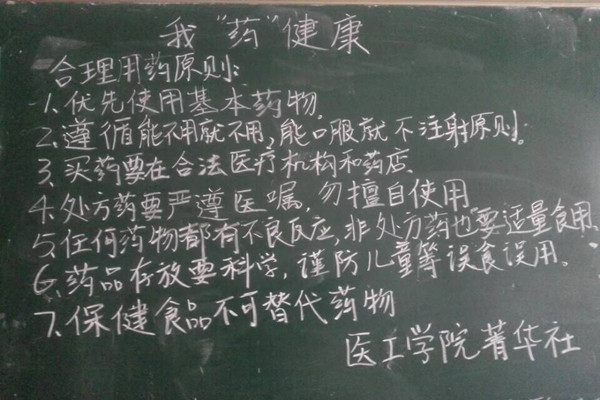 我“药”健康
合理用药原则:
1.优先使用基本药物。
2.遵循能不用就不用,能口服就不注射原则。
3.买药要在合法医疗机构和药店.
4.处方药要严遵医嘱,勿擅自使用
5.任何药物都有不良反应,非处方药也要适量食用.
6.药品存放要科学,谨防儿童等误食误用。
7.保健食品不可替代药物
医工学院菁华社